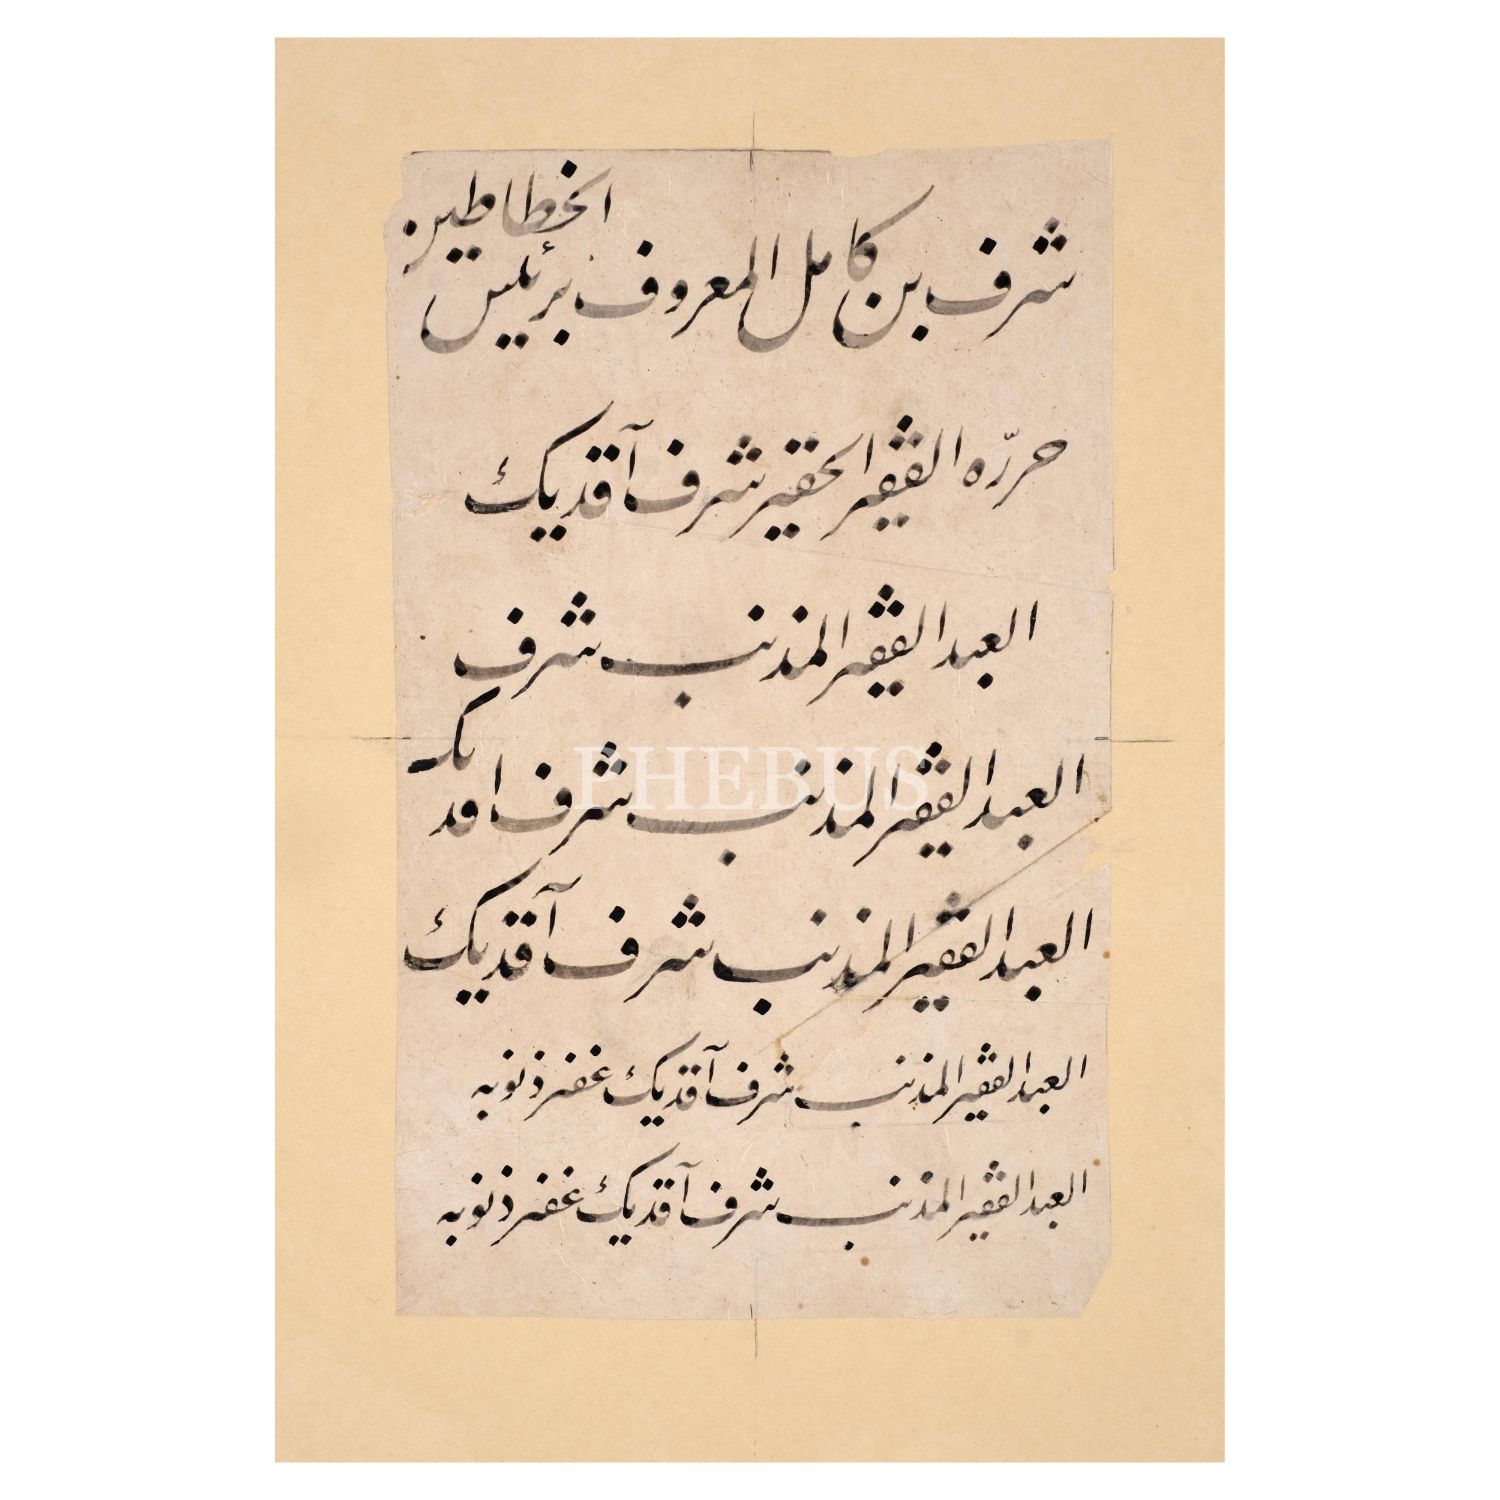 شرف بن كامل المعروف برئيس الخطاطين
حرّره الفقير الحقير شرف آقديك
العبد الفقير المذنب شرف
العبد الفقير المذنب شرف اقديك
PHEBUS
العبد الفقير المذنب شرف آقديك
العبد الفقير المذنب شرف آقديك غفر ذنوبه
العبد الفقير المذنب شرف آقديك غفر ذنوبه